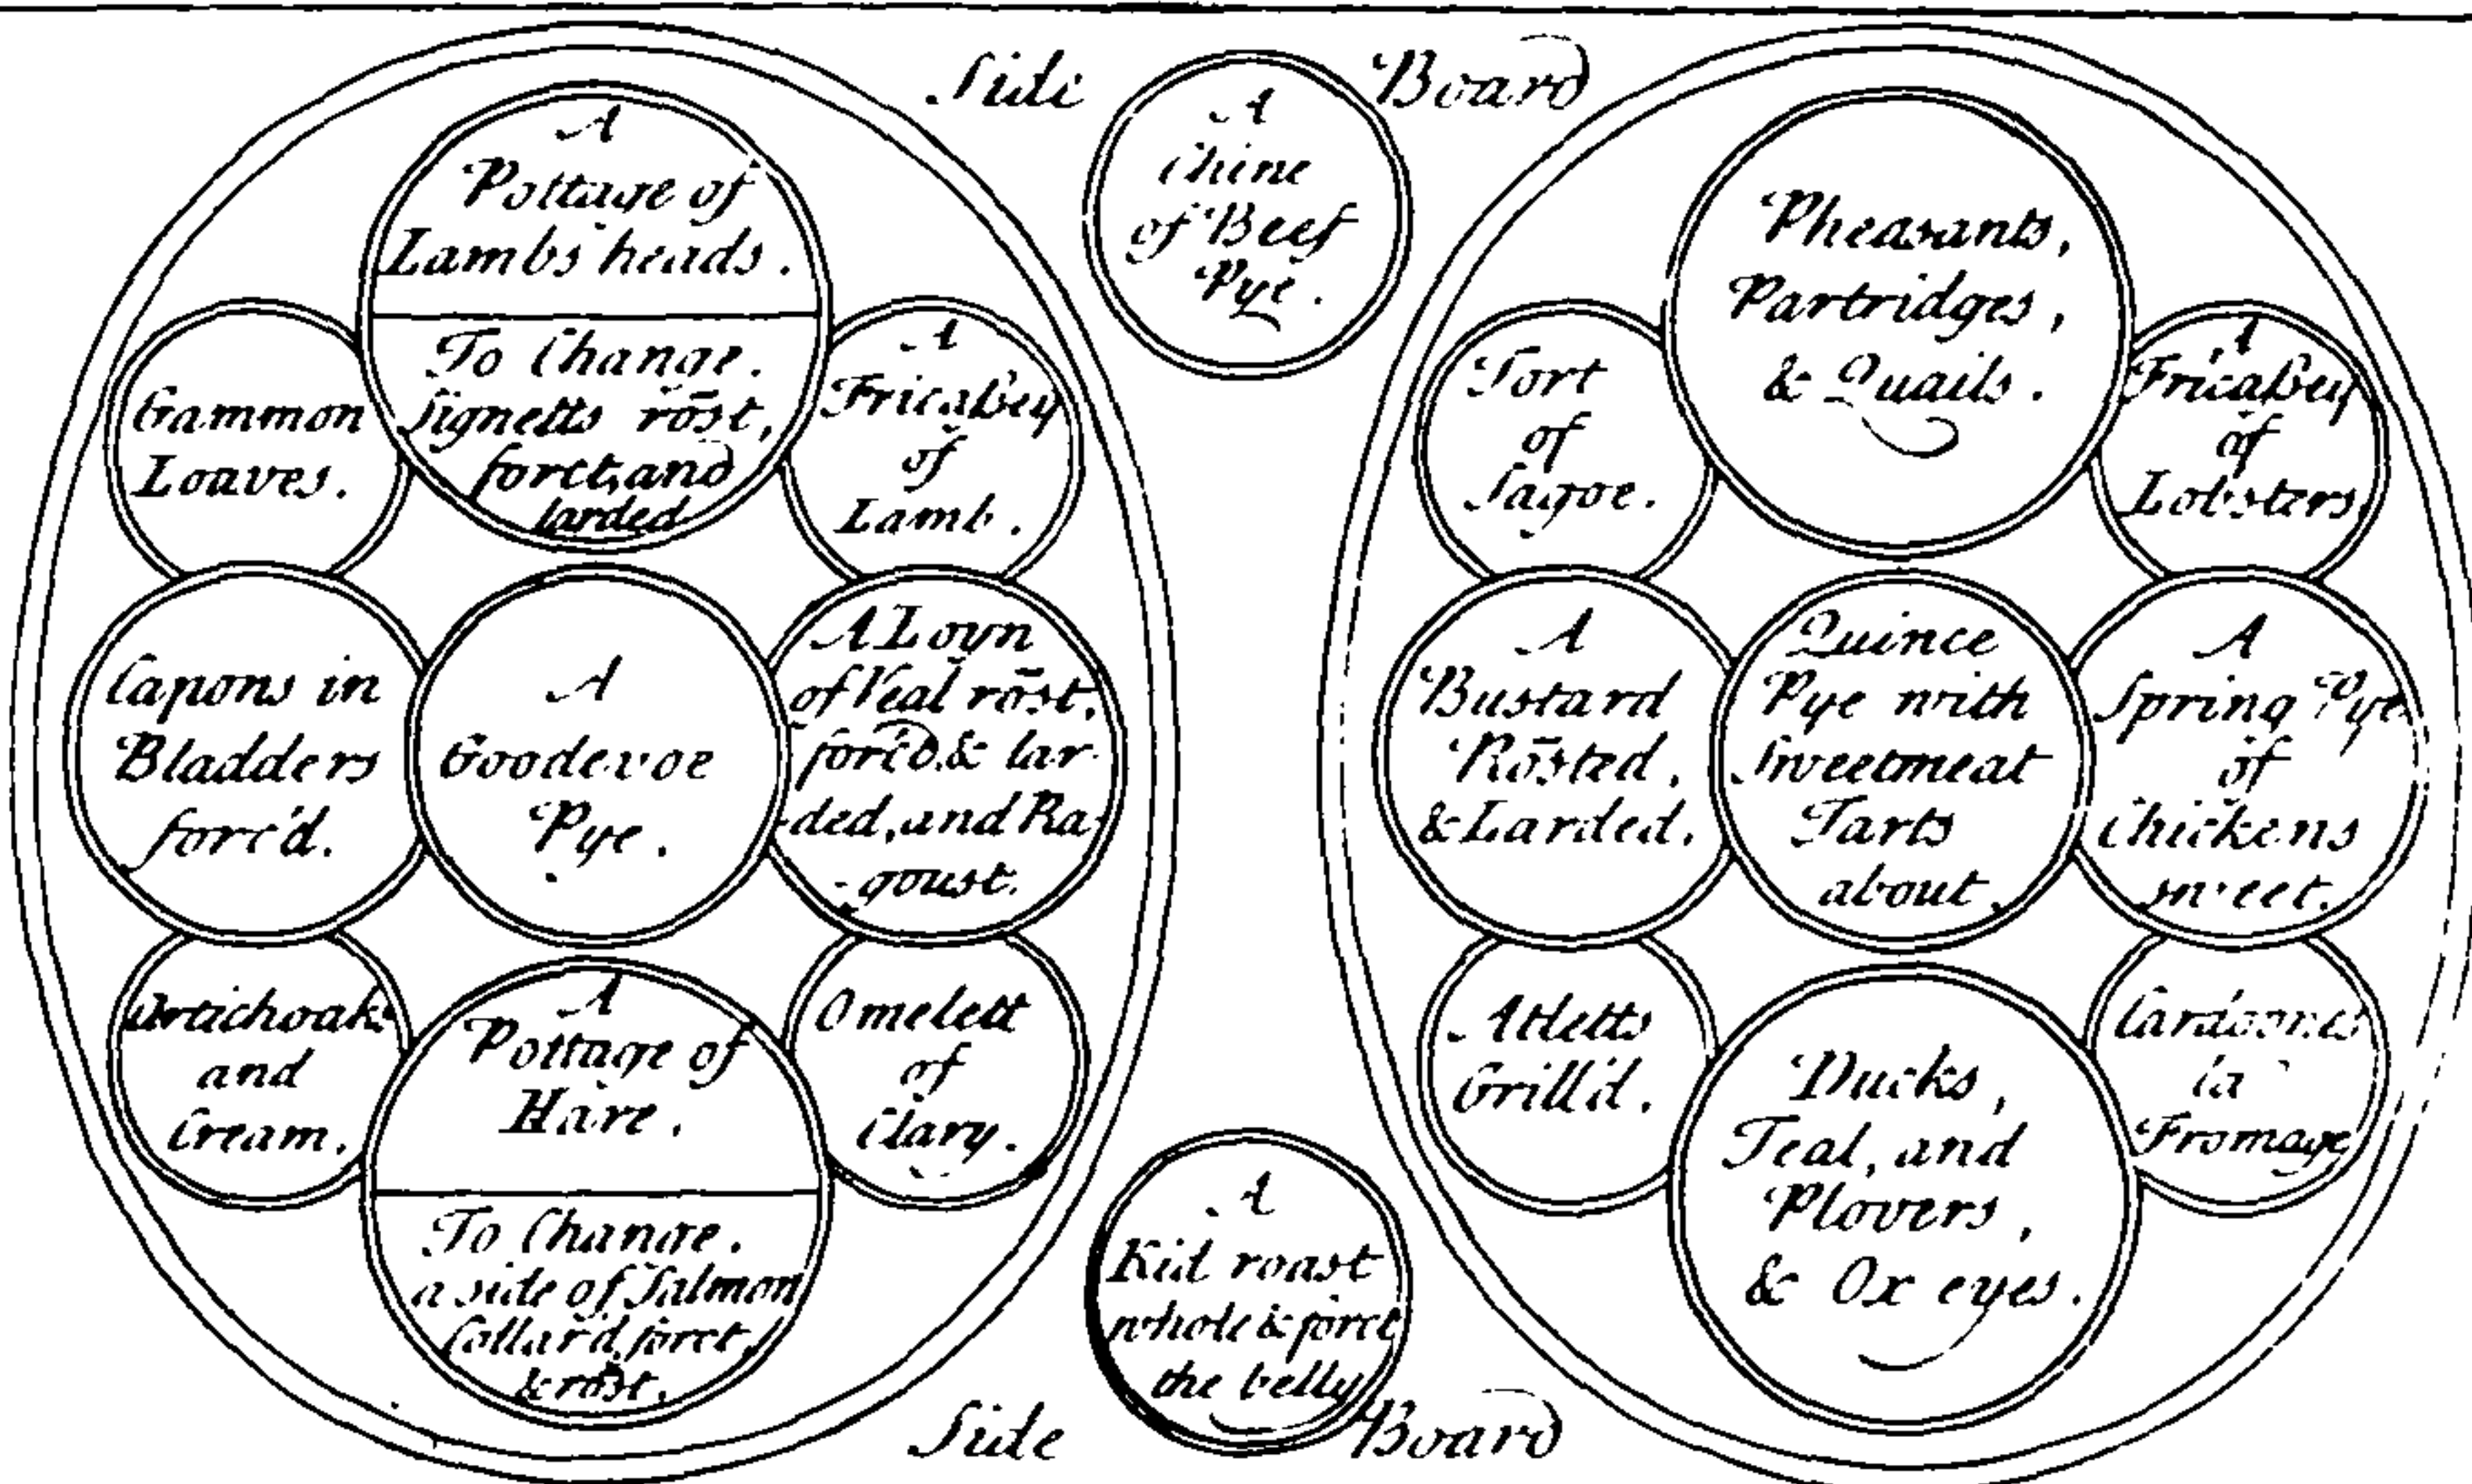 Side Board
A
Chine
of Beef
Pye.
A
Pottage of
Lambs heads.
To Change.
Signetts rōst,
forct, and
larded
Gammon
Loaves.
A
Fricaßey
of
Lamb.
Capons in
Bladders
forc'd.
A
Goodevoe
Pye.
A Loyn
of Veal rōst,
forc'd, & lar-
-ded, and Ra-
-goust.
Artichoaks
and
Cream.
A
Pottage of
Hare.
To Change.
a side of Salmon
Collar'd, forct,
& rōst.
Omelett
of
Clary.
Pheasants,
Partridges,
& Quails.
Tort
of
Sagoe.
A
Fricaßey
of
Lobsters
A
Bustard
Rōsted,
& Larded.
Quince
Pye with
Sweetmeat
Tarts
about.
A
Spring Pye
of
Chickens
sweet.
Atletts
Grill'd.
Ducks,
Teal, and
Plovers,
& Ox eyes.
Cardoones
la
Fromage
A
Kid roast
whole & forct
the belly
Side Board